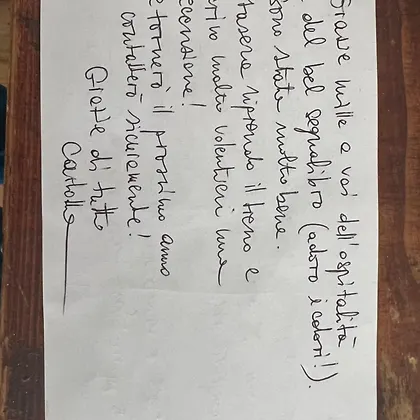 Grazie mille a voi dell'ospitalità
del bel segnalibro (adoro i colori!).
sono stata molto bene.
tasera riprendo il treno e
crivo molto volentieri una
ecensione!
e tornerò il prossimo anno
contatterò sicuramente!
Grazie di tutto
Carlotta